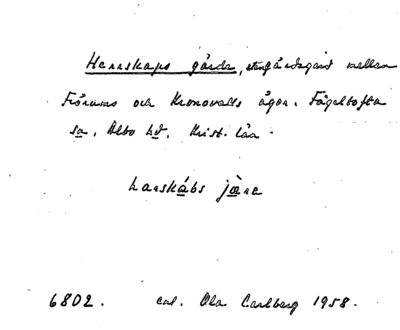 Herrskaps gärda, stengärdsgård mellan
Frörums och Kronovalls ägor. Fågeltofta
sn, Albo hd, Krist. län.
harskábs jære
6802. out. Ola Carlberg 1958.